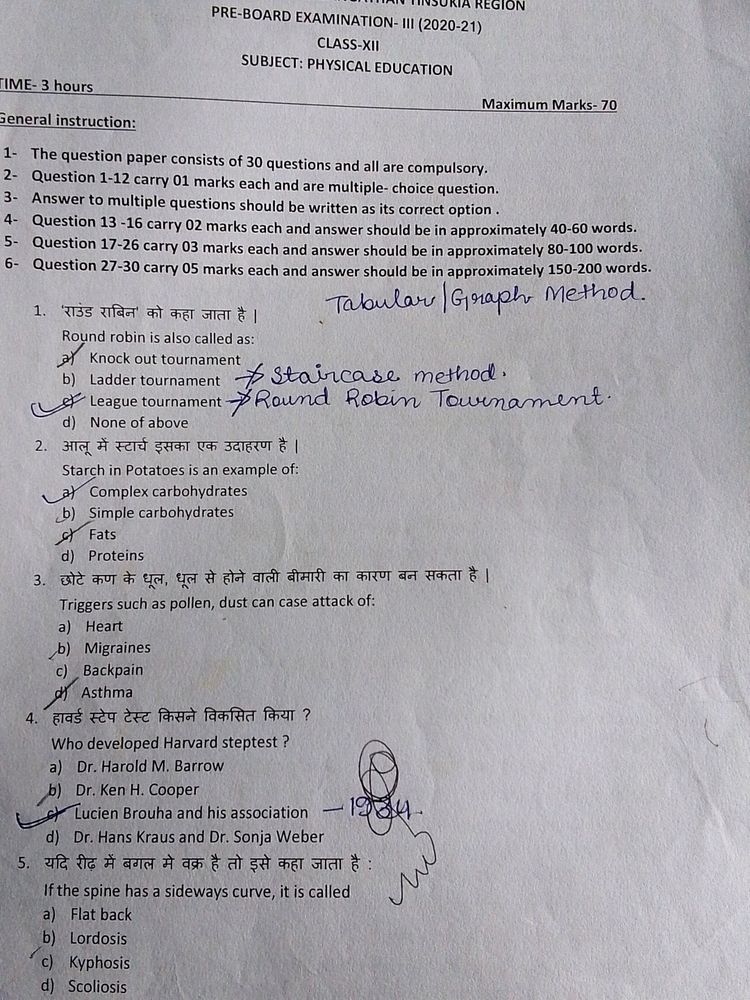 TINSUKIA REGION
PRE-BOARD EXAMINATION- III (2020-21)
CLASS-XII
SUBJECT: PHYSICAL EDUCATION
TIME- 3 hours
Maximum Marks- 70
General instruction:
1- The question paper consists of 30 questions and all are compulsory.
2- Question 1-12 carry 01 marks each and are multiple- choice question.
3- Answer to multiple questions should be written as its correct option .
4- Question 13 -16 carry 02 marks each and answer should be in approximately 40-60 words.
5- Question 17-26 carry 03 marks each and answer should be in approximately 80-100 words.
6- Question 27-30 carry 05 marks each and answer should be in approximately 150-200 words.
Tabular/Graph Method.
1. 'राउंड राबिन' को कहा जाता है |
Round robin is also called as:
a) Knock out tournament
b) Ladder tournament → Staircase method.
c) League tournament → Round Robin Tournament.
d) None of above
2. आलू में स्टार्च इसका एक उदाहरण है |
Starch in Potatoes is an example of:
a) Complex carbohydrates
b) Simple carbohydrates
c) Fats
d) Proteins
3. छोटे कण के धूल, धूल से होने वाली बीमारी का कारण बन सकता है |
Triggers such as pollen, dust can case attack of:
a) Heart
b) Migraines
c) Backpain
d) Asthma
4. हावर्ड स्टेप टेस्ट किसने विकसित किया ?
Who developed Harvard steptest ?
a) Dr. Harold M. Barrow
b) Dr. Ken H. Cooper
c) Lucien Brouha and his association
d) Dr. Hans Kraus and Dr. Sonja Weber
5. यदि रीढ़ में बगल मे वक्र है तो इसे कहा जाता है :
If the spine has a sideways curve, it is called
a) Flat back
b) Lordosis
c) Kyphosis
d) Scoliosis